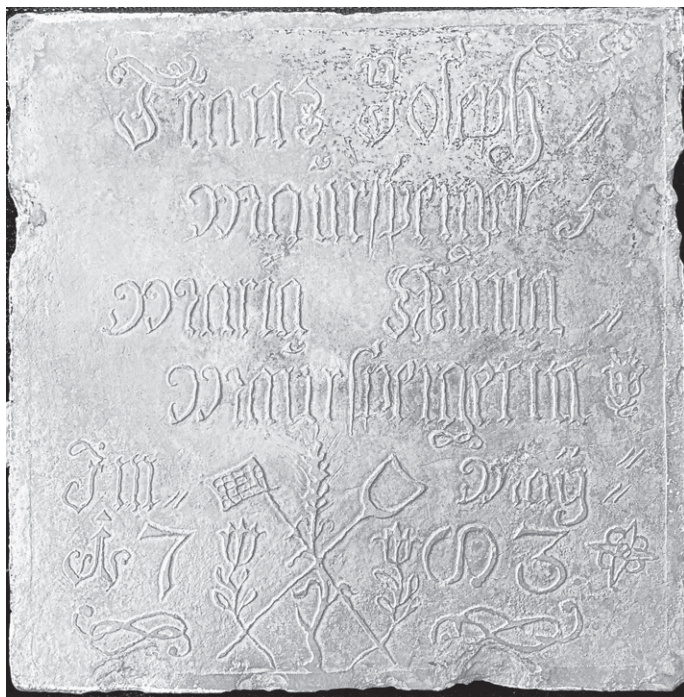 Franz Joseph
Maŭrſperger
Maria Anna
Maŭrſpergerin
Im Maÿ
1783